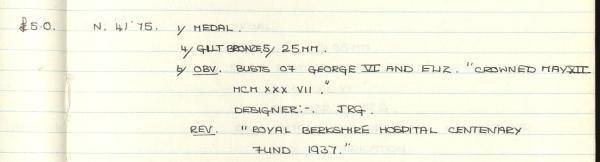 £5.0. N. 41'75. 1/ MEDAL.
4/ GILT BRONZE 5/ 25MM.
6/ OBV. BUSTS OF GEORGE VI AND ELIZ. "CROWNED MAY XII
MCM XXX VII."
DESIGNER:-. JRG.
REV. "ROYAL BERKSHIRE HOSPITAL CENTENARY
FUND 1937."